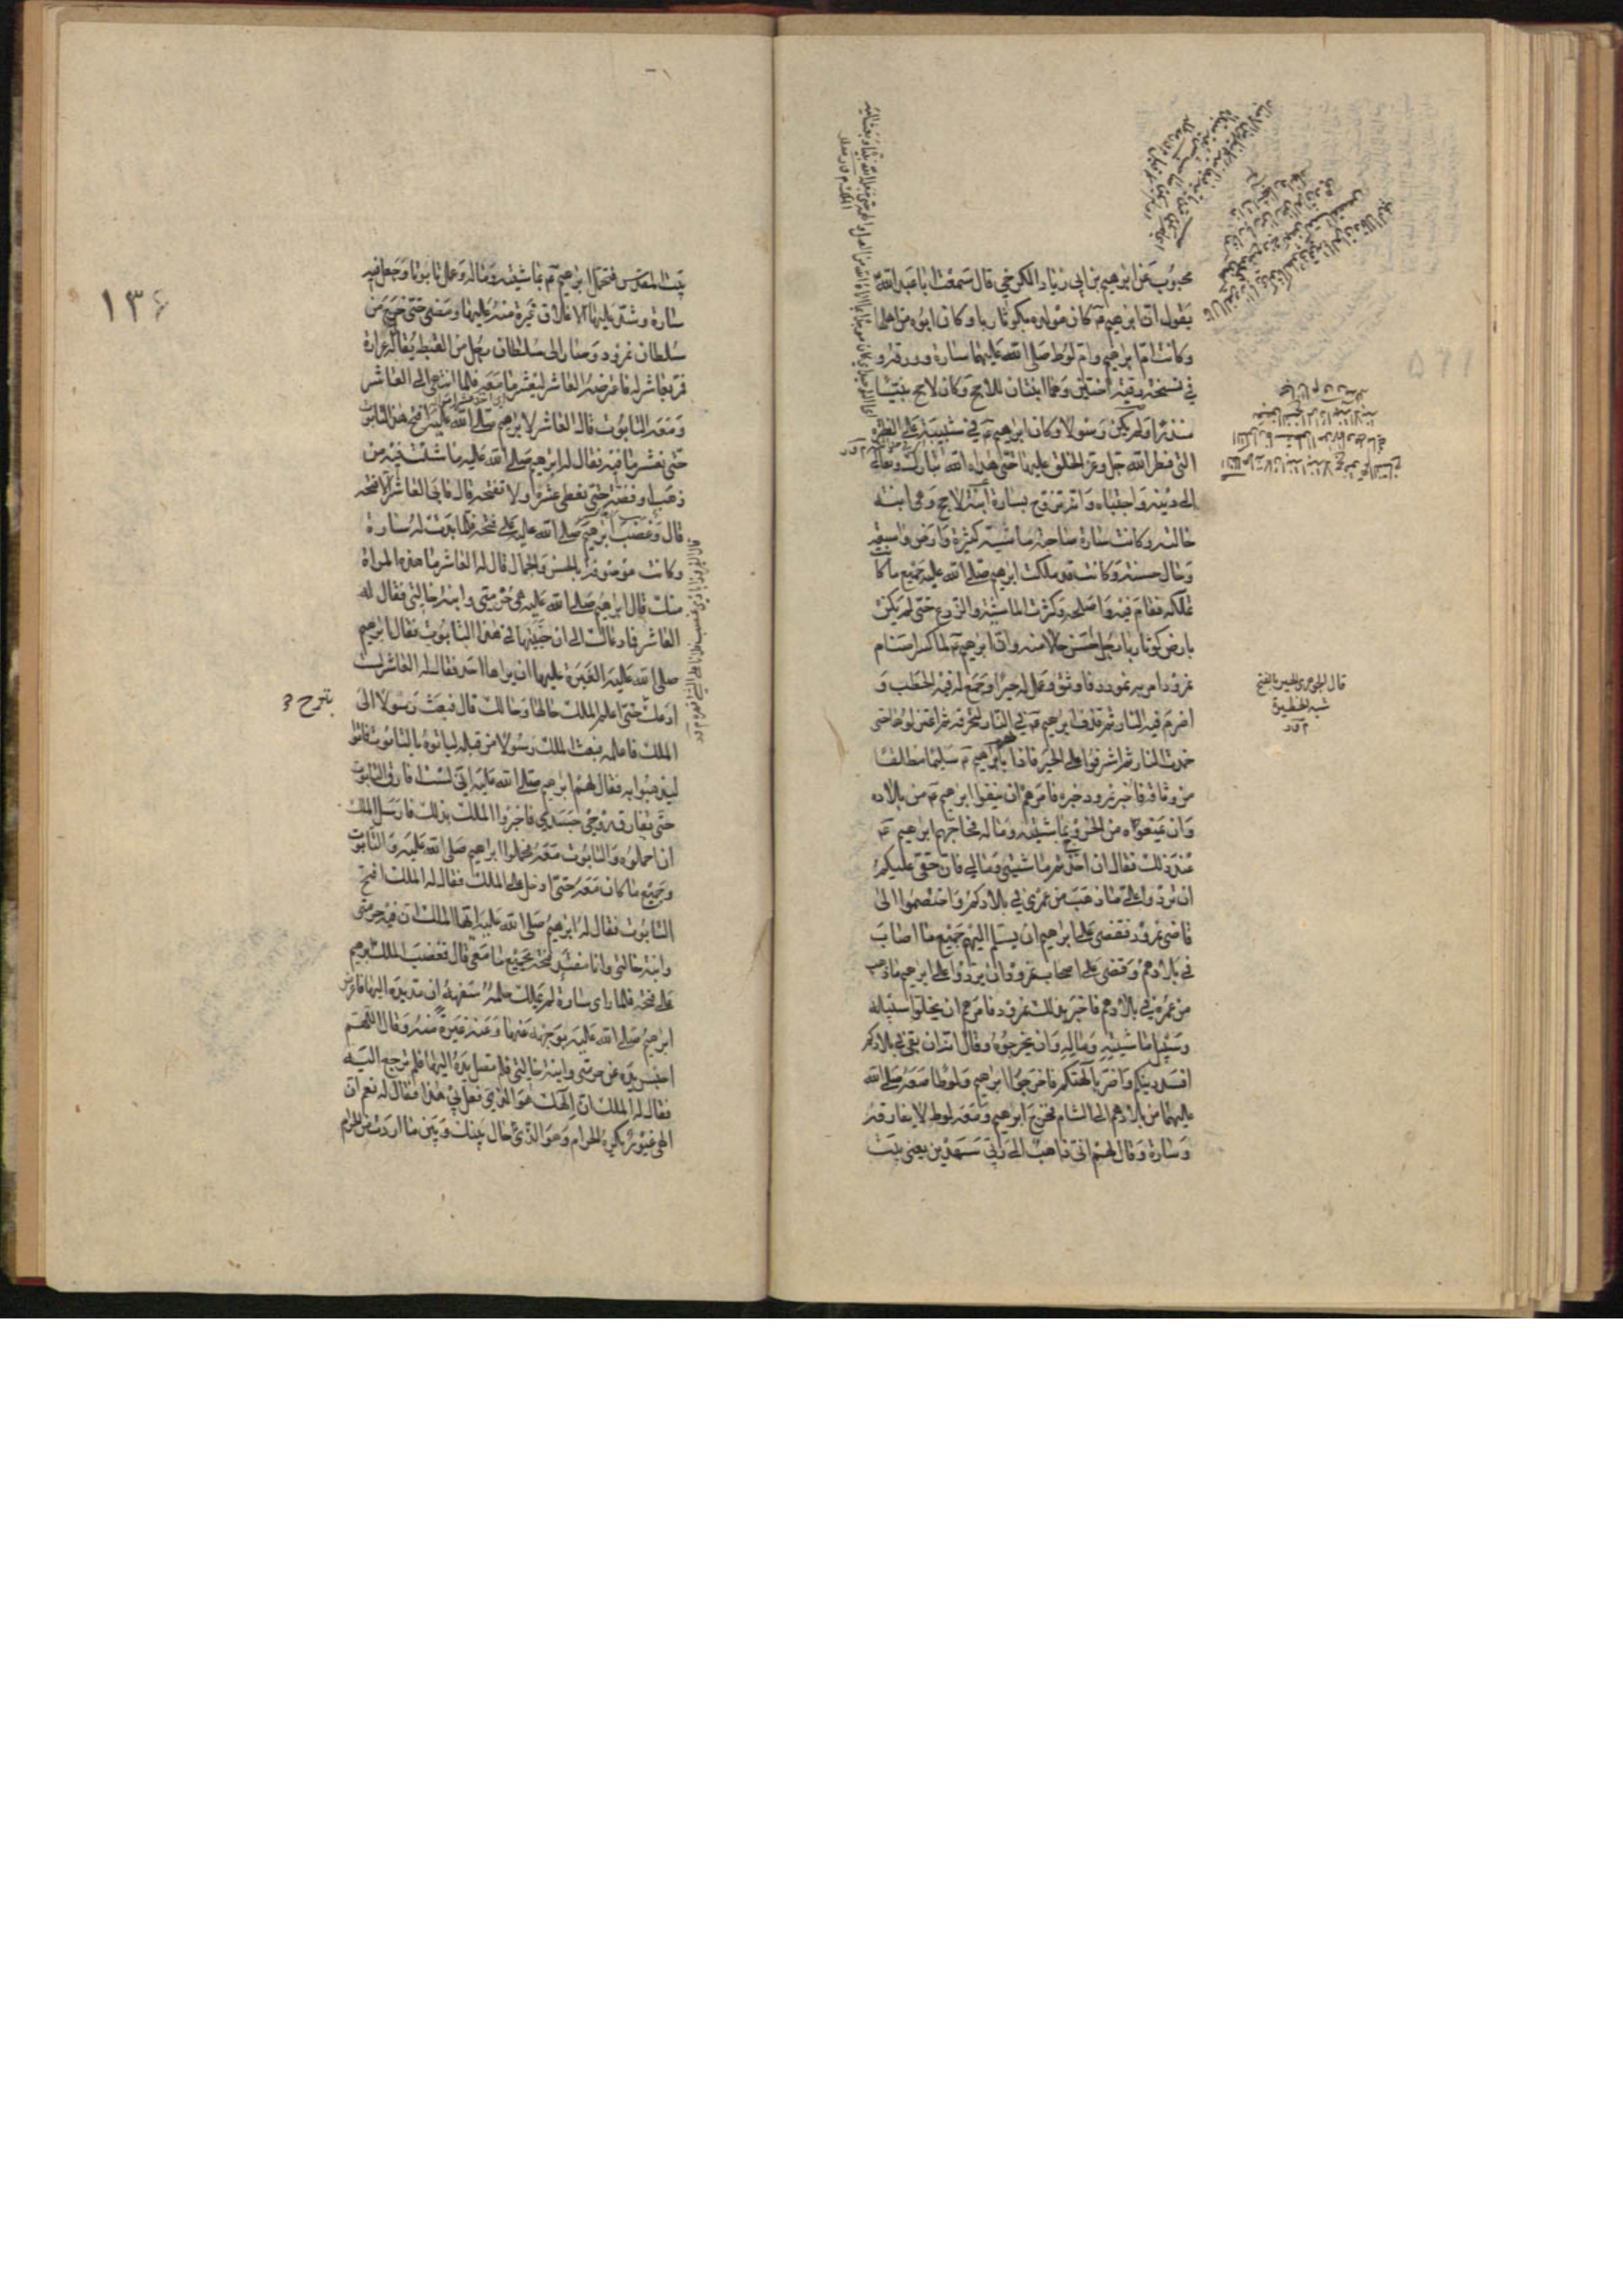 محبوب عن ابرهيم بن ابى زياد الكرخي قال سمعت ابا عبد الله ع
يقول ان ابرهيم ع كان مولده بكوثا ربا وكان ابوه من اهلها
وكانت ام ابرهيم وام لوط صلى الله عليهما سارة وورقة و
في نسخة رقية اختين وهما ابنتان للاحج وكان لاحج نبيا
منذرا ولم يكن رسولا وكان ابرهيم ع في شبيبته على الفطرة
التى فطر الله جل وعز الخلق عليها حتى هداه الله تبارك وتعالى
الى دينه واجتباه وانه تزوج بسارة ابنة لاحج وهي ابنة
خالته وكانت سارة صاحبة ماشية كثيرة وارض واسعة
وحال حسنة وكانت قد ملكت ابرهيم صلى الله عليه جميع ما كانت
تملكه فقام فيه واصلحه وكثرت الماشية والزرع حتى لم يكن
بارض كوثا ربا رجل احسن حالا منه وان ابرهيم ع لما كسر اصنام
نمرود امر به نمرود فاوثق وعمل له حيرا وجمع له فيه الحطب و
اضرم فيه النار ثم قذف ابرهيم ع في النار لتحرقه ثم اعتزلوها حتى
خمدت النار ثم اشرفوا على الحير فاذا هم بابرهيم ع سليما مطلقا
من وثاقه فاخبر نمرود خبره فامرهم ان ينفوا ابرهيم ع من بلاده
وان يمنعوه من الخروج بماشيته وماله فحاجهم ابرهيم ع
عند ذلك فقال ان اخذتم ماشيتي ومالي فان حقى عليكم
ان تردوا علي ما ذهب من عمري في بلادكم واختصموا الى
قاضى نمرود فقضى على ابرهيم ان يسلم اليهم جميع ما اصاب
في بلادهم وقضى على اصحاب نمرود ان يردوا على ابرهيم ما ذهب
من عمره في بلادهم فاخبر بذلك نمرود فامرهم ان يخلوا سبيله
وسبيل ماشيته وماله وان يخرجوه وقال انه ان بقى في بلادكم
افسد دينكم واضر بآلهتكم فاخرجوا ابرهيم ولوطا معه صلى الله
عليهما من بلادهم الى الشام فخرج ابرهيم ومعه لوط لا يفارقه
وسارة وقال لهم انى ذاهب الى ربى سيهدين يعنى بيت
قال الجوهري الحير بالفتح
شبه الحظيرة
م ح ق
١٣۶
بيت المقدس فتحمل ابرهيم ع بماشيته وماله وعمل تابوتا وجعل فيه
سارة وشد عليها الاغلاق غيرة منه عليها ومضى حتى خرج من
سلطان نمرود وصار الى سلطان رجل من القبط يقال له عرارة
فمر بعاشر له فاعترضه العاشر ليعشر ما معه فلما انتهى الى العاشر
ومعه التابوت قال العاشر لابرهيم صلى الله عليه افتح هذا التابوت
حتى نعشر ما فيه فقال له ابرهيم صلى الله عليه ما شئت فيه من
ذهب او فضة حتى نعطى عشره ولا تفتحه قال فابى العاشر الا فتحه
قال وغضب ابرهيم صلى الله عليه على فتحه فلما بدت له سارة
وكانت موصوفة بالحسن والجمال قال له العاشر ما هذه المراة
منك قال ابرهيم صلى الله عليه هي حرمتى وابنة خالتى فقال له
العاشر فما دعاك الى ان خبيتها في هذا التابوت فقال ابرهيم
صلى الله عليه الغيرة عليها ان يراها احد فقال له العاشر لست
ادعك حتى اعلم الملك حالها وحالك قال فبعث رسولا الى
الملك فاعلمه فبعث الملك رسولا من قبله لياتوه بالتابوت فاتوا
ليذهبوا به فقال لهم ابرهيم صلى الله عليه انى لست افارق التابوت
حتى تفارق روحي جسدي فاخبروا الملك بذلك فارسل الملك
ان احملوه والتابوت معه فحملوا ابراهيم صلى الله عليه والتابوت
وجميع ما كان معه حتى ادخل على الملك فقال له الملك افتح
التابوت فقال له ابرهيم صلى الله عليه ايها الملك ان فيه حرمتى
وابنة خالتى وانا مفتد فتحه بجميع ما معى قال فغضب الملك ابرهيم
على فتحه فلما راى سارة لم يملك حلمه سفهه ان مد يده اليها فاعرض
ابرهيم صلى الله عليه بوجهه عنها وعنه غيرة منه وقال اللهم
احبس يده عن حرمتى وابنة خالتى فلم تصل يده اليها فلم ترجع اليه
فقال له الملك ان الهك هو الذي فعل بي هذا فقال له نعم ان
الهى غيور يكره الحرام وهو الذى حال بينك وبين ما اردت من الحرام